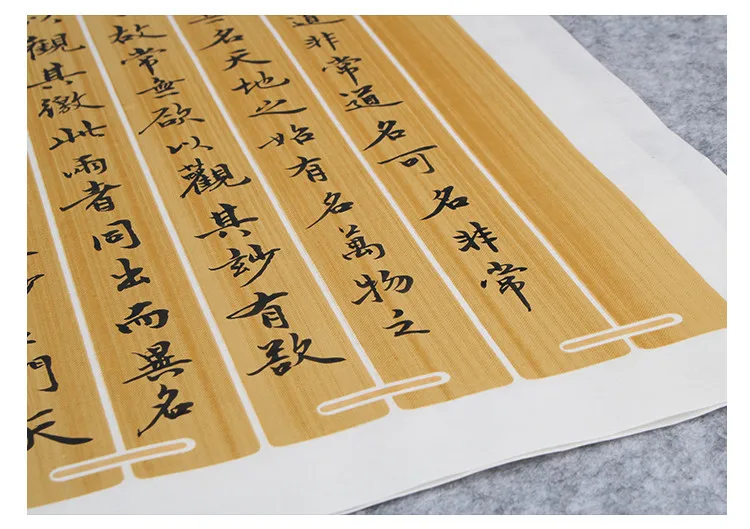 道非常道名可名非常
名天地之始有名萬物之
故常無欲以觀其玅有欲
以觀其徼此兩者同出而異名
門天